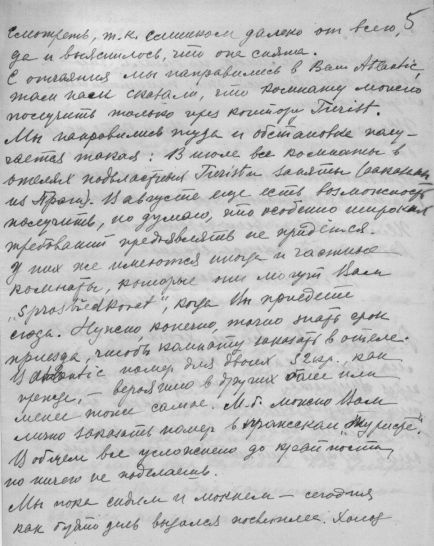 5
смотреть, т.к. слишком далеко от всего,
да и выяснилось, что она снята.
С отчаяния мы направились в Ваш Atlantic,
там нам сказали, что комнату можно
получить только через контору Turist.
Мы направились туда и обстановка полу-
чается такая: В июле все комнаты в
отелях подвластных Turist'у заняты (заказаны
из Праги). В августе еще есть возможность
получить, но думаю, что особенно широких
требований предъявлять не придется.
У них же имеются иногда и частные
комнаты, которые они могут Вам
"sprostředkovat", когда Вы приедете
сюда. Нужно, конечно, точно знать срок
приезда, чтобы комнату заказать в отеле.
В Atlantic номер для двоих 52 кр., как
прежде, – вероятно в других более или
менее тоже самое. М.б. можно Вам
лично заказать номер в пражском "Туристе".
В общем все усложнено до крайности,
но ничего не поделаешь.
Мы пока сидим и мокнем – сегодня
как будто день выдался посветлее. Холод